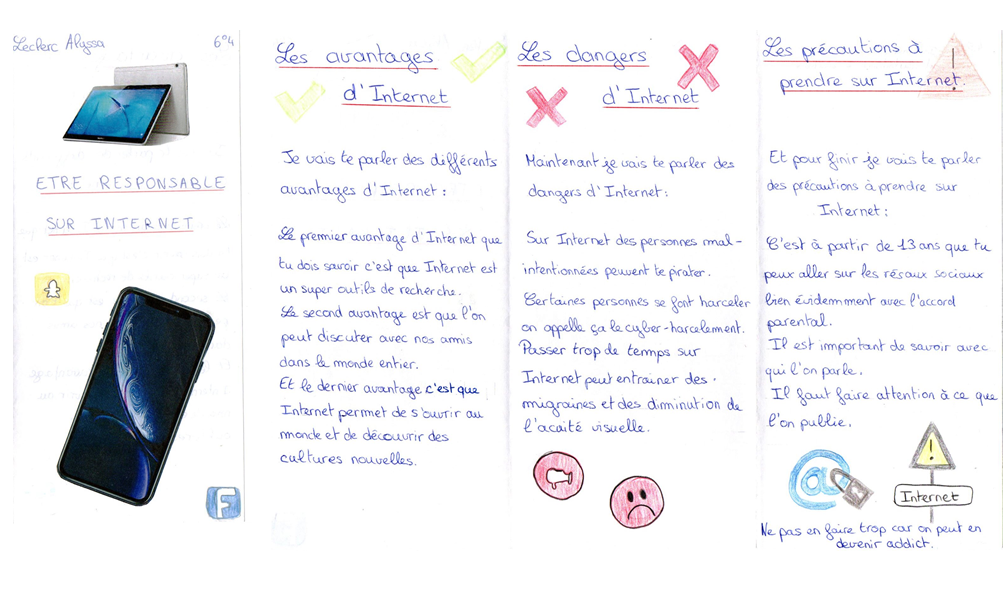 Leclerc Alyssa
6°4
ETRE RESPONSABLE
SUR INTERNET
F
Les avantages
d'Internet
Je vais te parler des différents
avantages d'Internet :
Le premier avantage d'Internet que
tu dois savoir c'est que Internet est
un super outils de recherche.
Le second avantage est que l'on
peut discuter avec nos amis
dans le monde entier.
Et le dernier avantage c'est que
Internet permet de s'ouvrir au
monde et de découvrir des
cultures nouvelles.
Les dangers
d'Internet
Maintenant je vais te parler des
dangers d'Internet :
Sur Internet des personnes mal-
intentionnées peuvent te pirater.
Certaines personnes se font harceler
on appelle ça le cyber-harcelement.
Passer trop de temps sur
Internet peut entrainer des
migraines et des diminution de
l'acaité visuelle.
Les précautions à
prendre sur Internet.
Et pour finir je vais te parler
des précautions à prendre sur
Internet :
C'est à partir de 13 ans que tu
peux aller sur les résaux sociaux
bien évidemment avec l'accord
parental.
Il est important de savoir avec
qui l'on parle.
Il faut faire attention à ce que
l'on publie.
@
!
Internet
Ne pas en faire trop car on peut en
devenir addict.